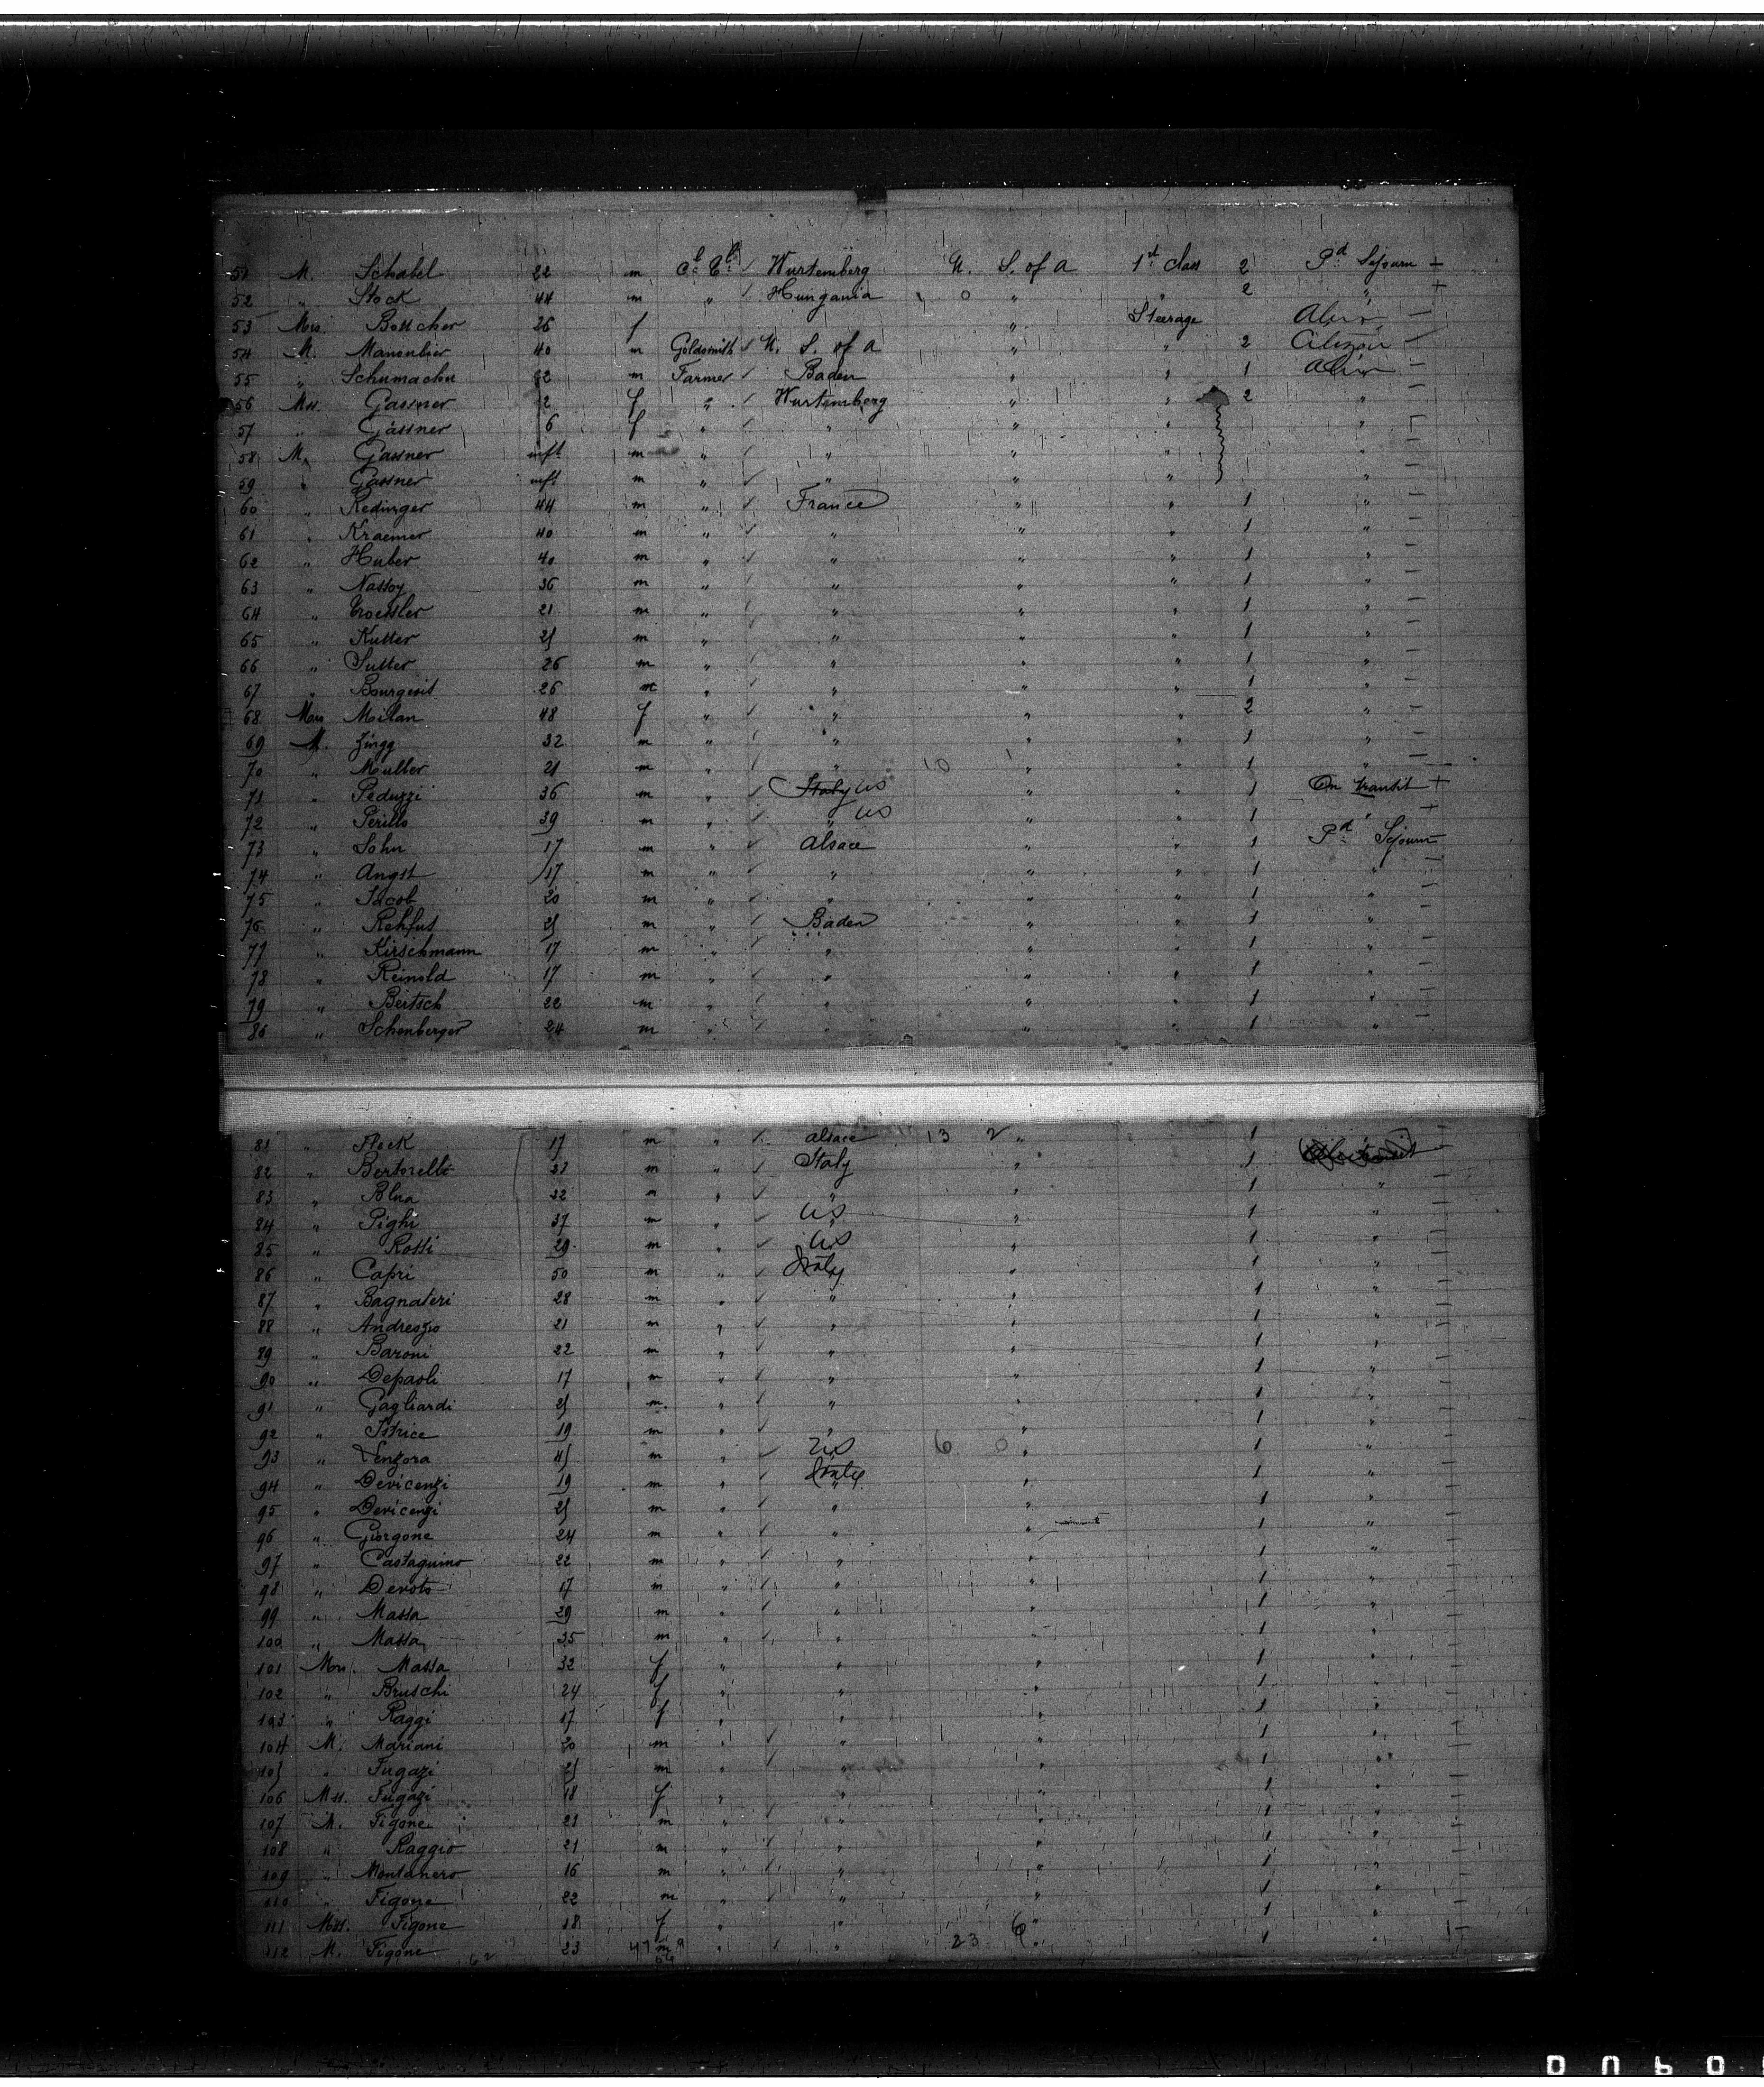 51 M. Schabel 22 m Cl. Ct. ✓ Wurtemberg U. S. of A 1st class 2 Pd Sejourn —
52 " Stock 44 m " ✓ Hungaria 0 " " 2 " +
53 Mrs. Bottcher 26 f " Steerage —
54 M. Manenbier 40 m Goldsmith ✓ U. S. of A " " 2 Citizen —
55 " Schumacher m Farmer ✓ Baden " " 1 —
56 Mss. Gassner f " ✓ Wurtemberg " " 2 " —
57 " Gassner 6 f " ✓ " " " "
58 M. Gassner inft m " ✓ " " " " —
59 " Gassner inft m " ✓ " " " " —
60 " Redinger 44 m " ✓ France " " 1 " —
61 " Kraemer 40 m " ✓ " " " 1 " —
62 " Huber 40 m " ✓ " " " 1 " —
63 " Nassoy 36 m " ✓ " " " 1 " —
64 " Troessler 21 m " ✓ " " " 1 " —
65 " Kutter 25 m " ✓ " " " 1 " —
66 " Sutter 26 m " ✓ " " " 1 " —
67 " Bourgeois 26 m " ✓ " " " 1 " —
68 Mrs Meilan 48 f " ✓ " " " 2 " —
69 M. Zingg 32 m " ✓ " " " 1 " —
70 " Muller 21 m " ✓ " 10 " " 1 " —
71 " Peduzzi 36 m " ✓ Italy US " " 1 On transit +
72 " Perillo 39 m " ✓ " US " " 1 " +
73 " Sohn 17 m " ✓ Alsace " " 1 Pd Sejourn
74 " Angst 17 m " ✓ " " " 1 " —
75 " Jacob 20 m " ✓ " " " 1 " —
76 " Rehfus 25 m " ✓ Baden " " 1 " —
77 " Kirschmann 17 m " ✓ " " " 1 " —
78 " Reinold 17 m " ✓ " " " 1 " —
79 " Beitsch 22 m " ✓ " " " 1 " —
80 " Schenberger 24 m " ✓ " " " 1 " —
81 " Fleck 17 m " ✓ Alsace 13 2 " 1 —
82 " Bertorelli m " ✓ Italy " 1 —
83 " Blua 32 m " ✓ " " 1 " —
84 " Pighi 37 m " ✓ US " 1 " —
85 " Rossi 29 m " ✓ US " 1 " —
86 " Capri 50 m " ✓ Italy " 1 " —
87 " Bagnateri 28 m " ✓ " " 1 " —
88 " 21 m " ✓ " " 1 " —
89 " Baroni 22 m " ✓ " " 1 " —
90 " Depaoli 17 m " ✓ " " 1 " —
91 " Gagliardi 25 m " ✓ " " 1 " —
92 " Istrice 19 m " ✓ " " 1 " —
93 " 45 m " ✓ US 6 0 " 1 " —
94 " Devicenzi 19 m " ✓ Italy " 1 " —
95 " Devicenzi 25 m " ✓ " " 1 " —
96 " Giorgone 24 m " ✓ " " 1 " —
97 " Castagnino 22 m " ✓ " " 1 " —
98 " Devoto 17 m " ✓ " " 1 " —
99 " Massa 29 m " ✓ " " 1 " —
100 " Massa 35 m " ✓ " " 1 " —
101 Mrs. Massa 32 f " " " 1 " —
102 " Bruschi 24 f " " " 1 " —
103 " Raggi 17 f " " " 1 " —
104 M. Mariani 20 m " ✓ " " 1 " —
105 " Fugazi 25 m " ✓ " " 1 " —
106 Mss. Fugazi 18 f " " " 1 " —
107 M. Figone 21 m " ✓ " " 1 " —
108 " Raggio 21 m " ✓ " " 1 " —
109 " Montanero 16 m " ✓ " " 1 " —
110 " Figone 22 m " ✓ " " 1 " —
111 Mss. Figone 18 f " " " 1 " —
112 M. Figone 62 23 47 m 9 " ✓ " 23 6 " 1 " —